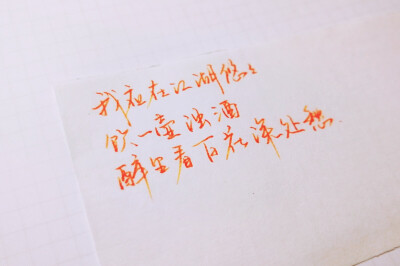 我应在江湖悠々
饮一壶浊酒
醉里看百花深处愁